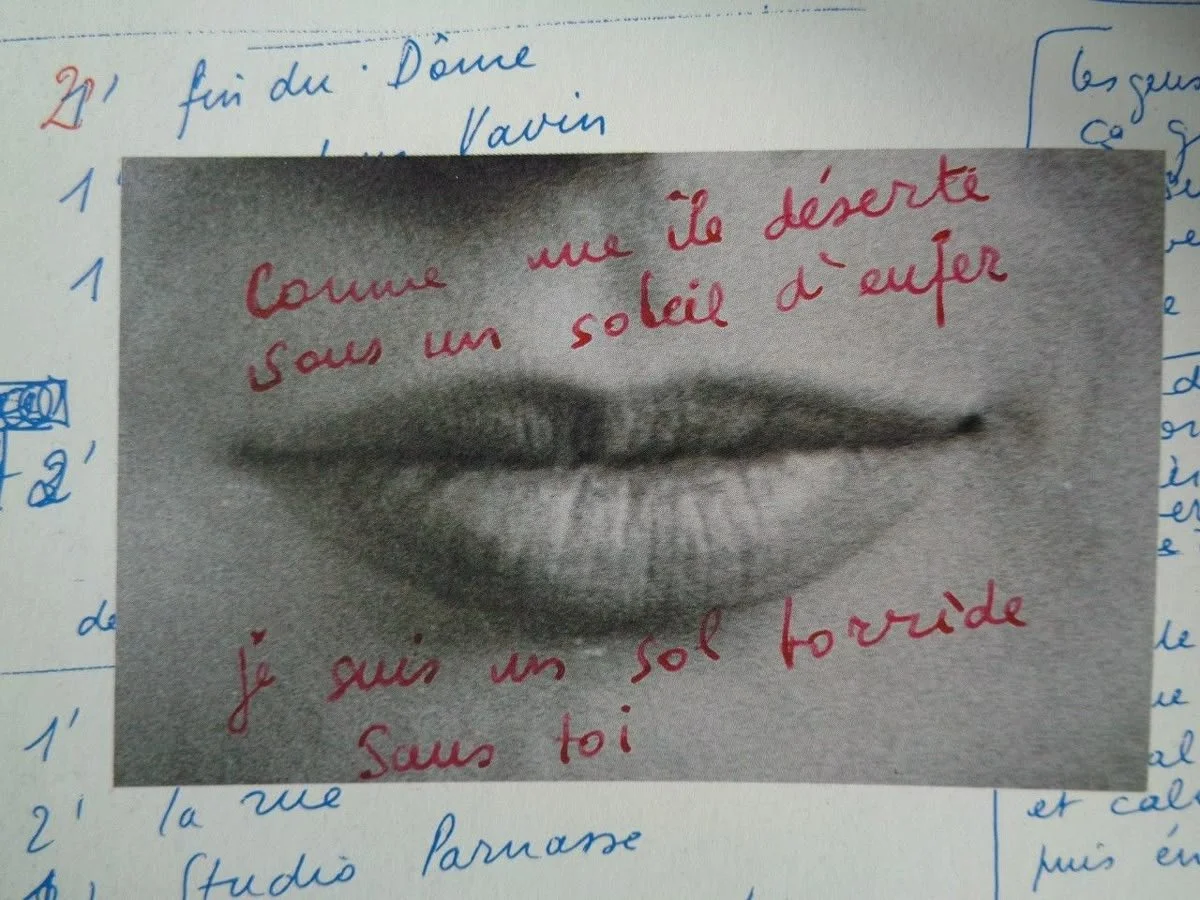 2' fin du Dôme
Vavin
1'
1
2'
de
1'
2' la rue
Studio Parnasse
Comme une île déserte
sous un soleil d'enfer
je suis un sol torride
Sans toi
les gens
ça
et
puis